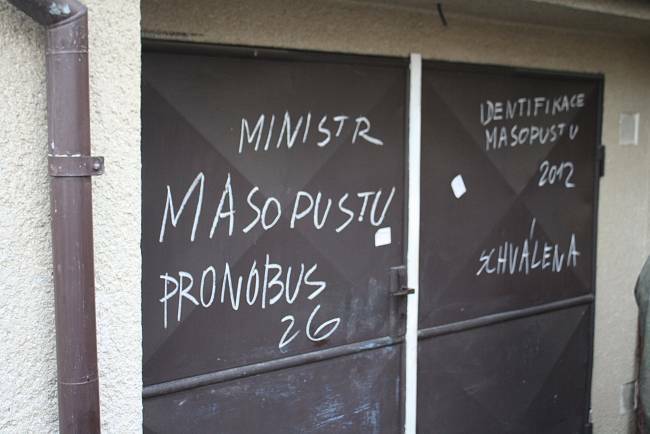 MINISTR
MASOPUSTU
PRONOBUS
26
IDENTIFIKACE
MASOPUSTU
2012
SCHVÁLENA